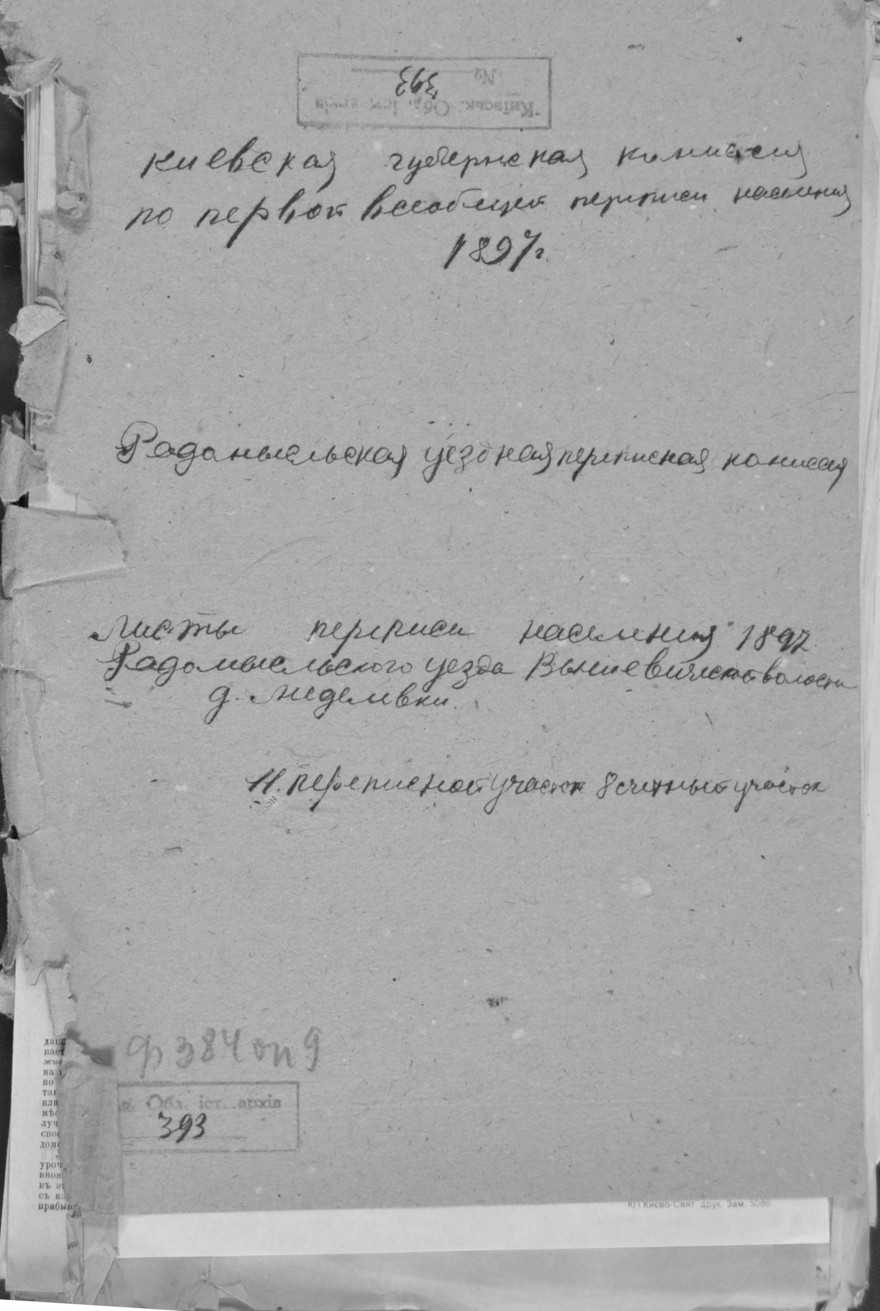 Київськ. Обл. іст. архів
№ 393
Киевская губернская комиссия
по первой всеобщей переписи населения
1897г.
Радомысльская уездная переписная комиссия
Листы переписи населения 1897
Радомысльского уезда Вышевичской волости
д.
11. переписной участок 8 счетный участок
ф 384 оп 9
Обл. іст. архів
393
КП Києво-Свят. друк. Зам.